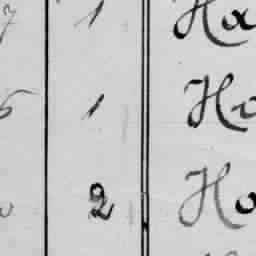 7 1 Ha
5 1 Ho
2 Ho